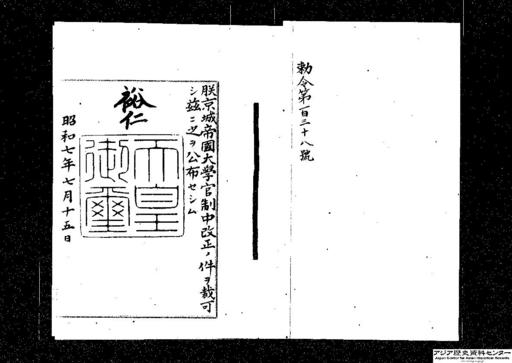 勅令第一百三十八號
朕京城帝國大學官制中改正ノ件ヲ裁可
シ茲ニ之ヲ公布セシム
裕仁
天皇
御璽
昭和七年七月十五日
アジア歴史資料センター
Japan Center for Asian Historical Records